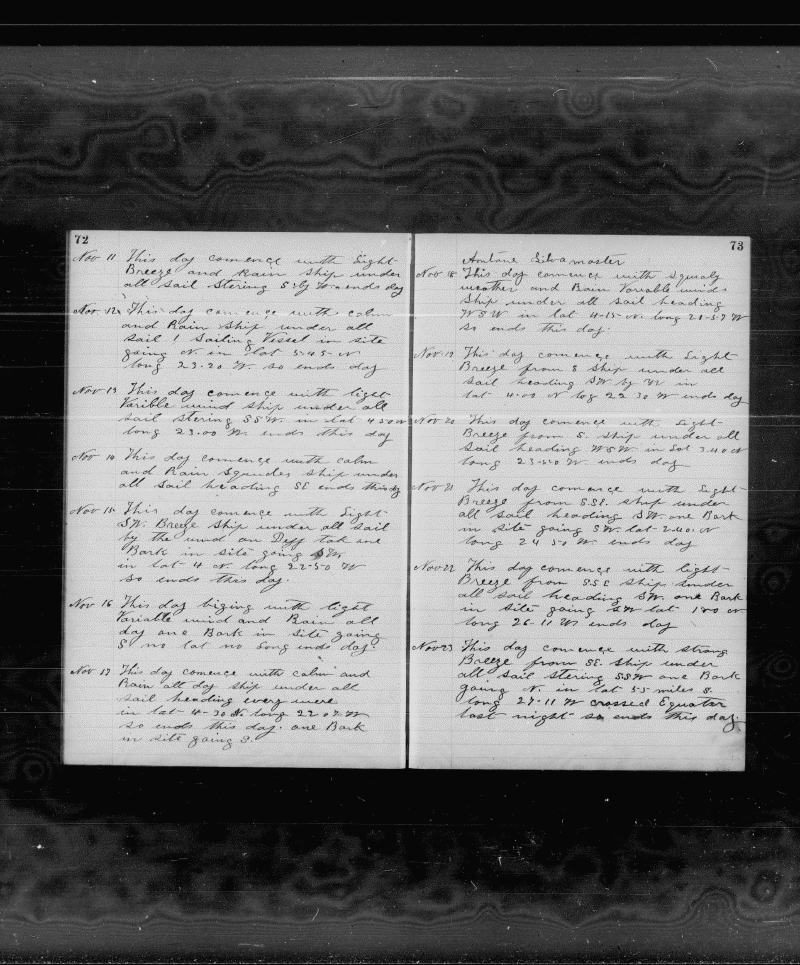 72
Nov 11 This day comence with Light
Breeze and Rain Ship under
all sail Stering S by W ends day
Nov 12 This day comence with calm
and Rain Ship under all
sail 1 Sailing Vessel in site
going N. in lat 5-45-N
long 23-20 W. so ends day
Nov 13 This day comence with light
Varible wind ship under all
sail stering SSW. in lat 4 50 N
long 23.00 W. ends this day
Nov 14 This day comence with calm
and Rain Squales ship under
all sail heading SE ends this day
Nov 15 This day comence with Light
SW. Breeze Ship under all sail
by the wind on Deff tak one
Bark in site going SW
in lat 4 N. long 22-50 W
so ends this day.
Nov 16 This day biging with light
Variable wind and Rain all
day one Bark in site going
S no lat no Long ends day.
Nov 17 This day comence with calm and
Rain all day ship under all
sail heading every were
in lat 4-30 N. long 22 07 W
so ends this day. one Bark
in site going S.
73
Antone Silva master
Nov 18 This day comence with squaly
weather and Rain Variable winds
Ship under all sail heading
WSW in lat 4-15-N. long 21-57 W
so ends this day.
Nov 19 This day comence with Light
Breeze from S ship under all
sail heading SW by W in
lat 4-00 N log 22 30 W ends day
Nov 20 This day comence with Light
Breeze from S. ship under all
sail heading WSW in Lat 3.40 N
long 23-50 W. ends day
Nov 21 This day comence with Light
Breeze from SSE. ship under
all sail heading SW. one Bark
in site going SW. lat 2-40. N
long 24 50 W. ends day
Nov 22 This day comence with light
Breeze from SSE ship under
all sail heading SW. one Bark
in site going SW lat 1 00 N
long 26-11 W ends day
Nov 23 This day comence with strong
Breeze from SE. ship under
all sail stering SSW one Bark
going N. in lat 55 miles S.
long 27-11 W crossed Equater
last night so ends this day.